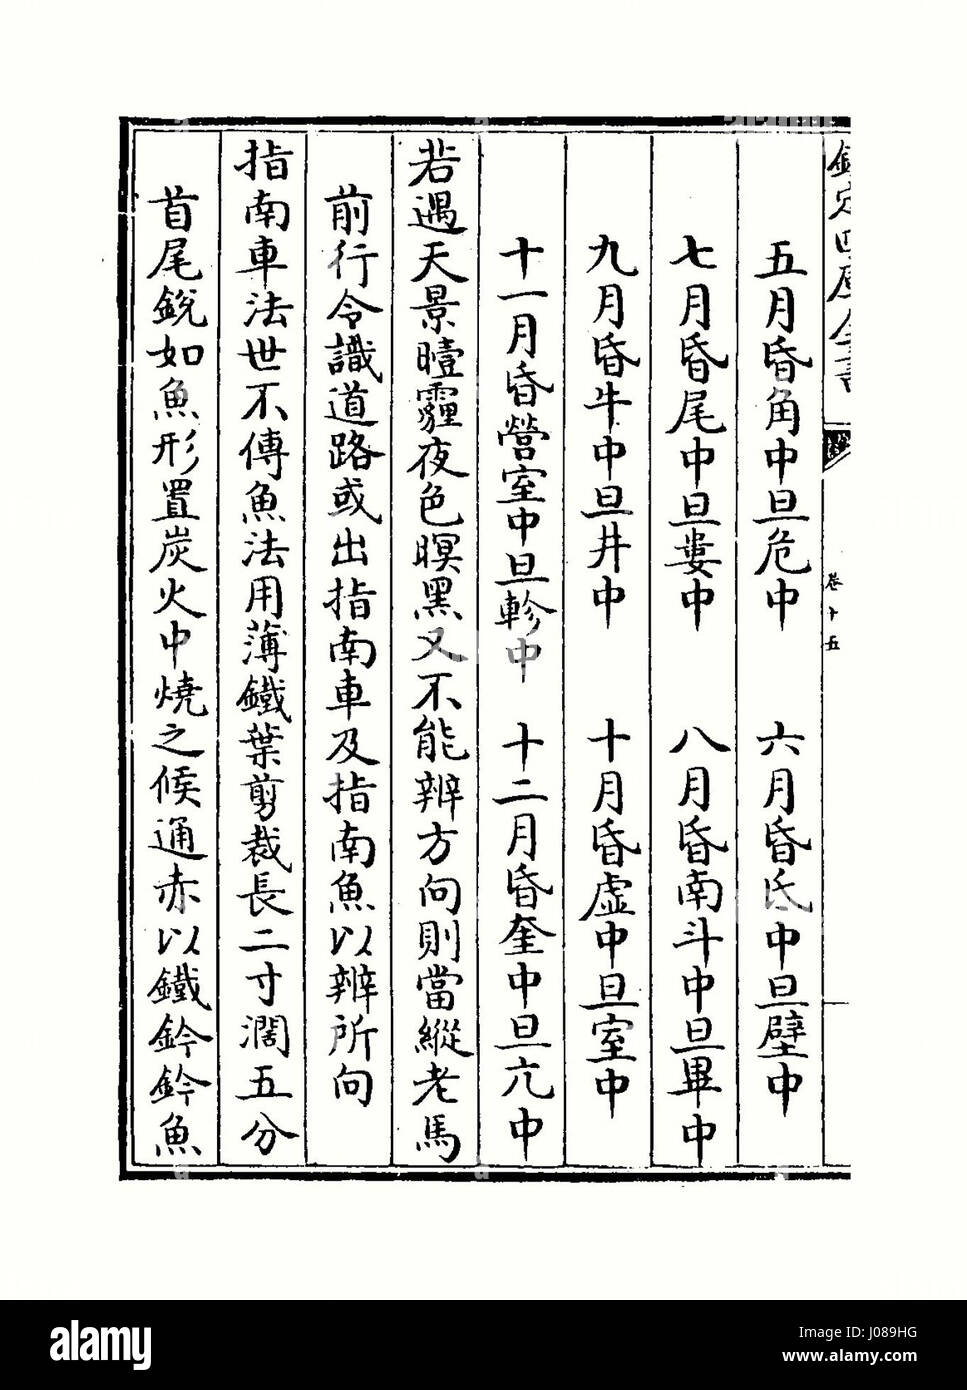 欽定四庫全書
卷十五
五月昏角中旦危中 六月昏氐中旦壁中
七月昏尾中旦婁中 八月昏南斗中旦畢中
九月昏牛中旦井中 十月昏虛中旦室中
十一月昏營室中旦軫中 十二月昏奎中旦亢中
若遇天景曀霾夜色暝黑又不能辨方向則當縱老馬
前行令識道路或出指南車及指南魚以辨所向
指南車法世不傳魚法用薄鐵葉剪裁長二寸濶五分
首尾銳如魚形置炭火中燒之候通赤以鐵鈐鈐魚
alamy
alamy
Image ID: J089HG
www.alamy.com